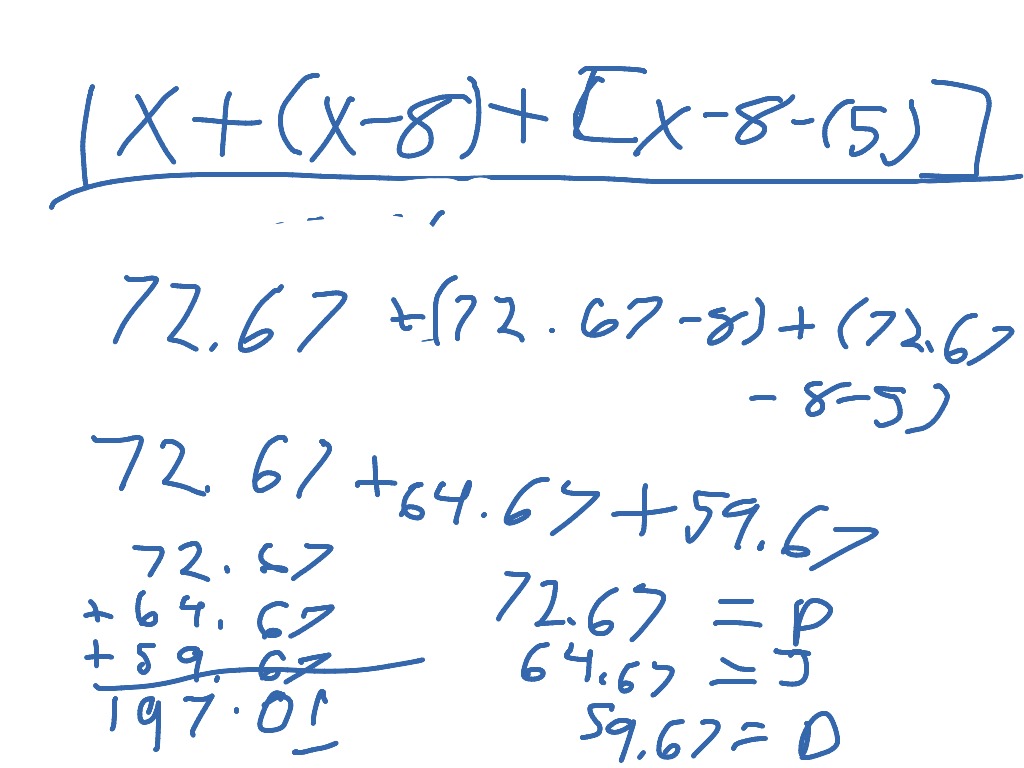 x + (x - 8) + [x - 8 - (5)]
72.67 + (72.67 - 8) + (72.67
- 8 - 5)
72.67 + 64.67 + 59.67
72.67
+ 64.67
+ 59.67
197.01
72.67 = P
64.67 = J
59.67 = D